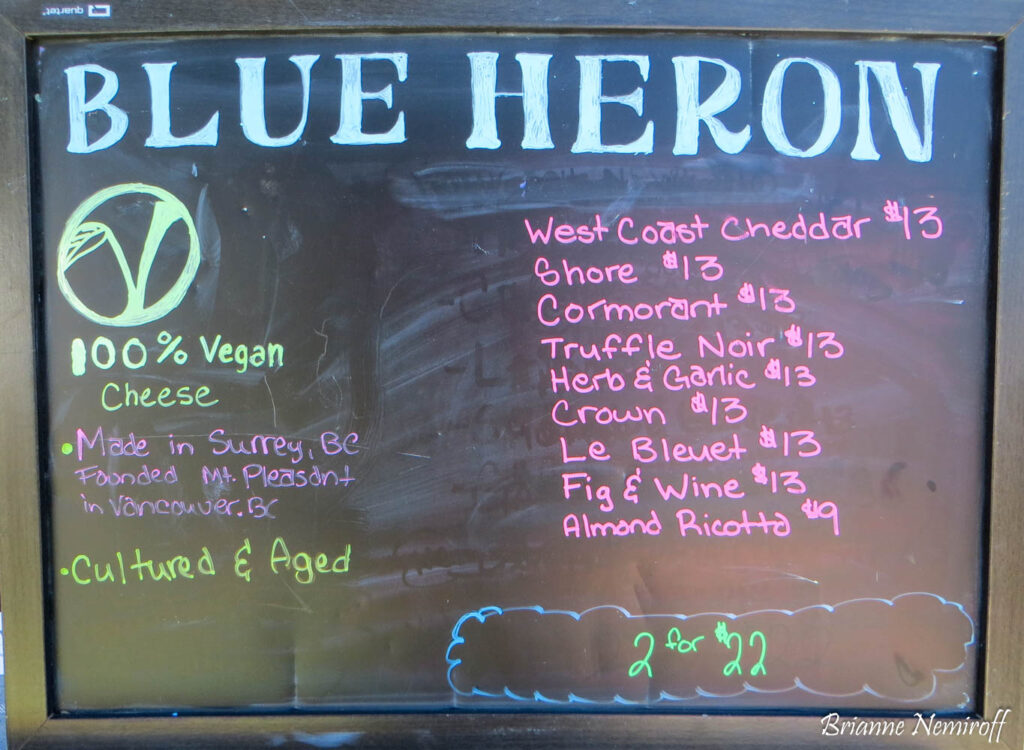 quartet
BLUE HERON
100% Vegan
Cheese
• Made in Surrey, BC
Founded Mt. Pleasant
in Vancouver. BC
• Cultured & Aged
West Coast Cheddar $13
Shore $13
Cormorant $13
Truffle Noir $13
Herb & Garlic $13
Crown $13
Le Bleuet $13
Fig & Wine $13
Almond Ricotta $9
2 for $22
Brianne Nemiroff